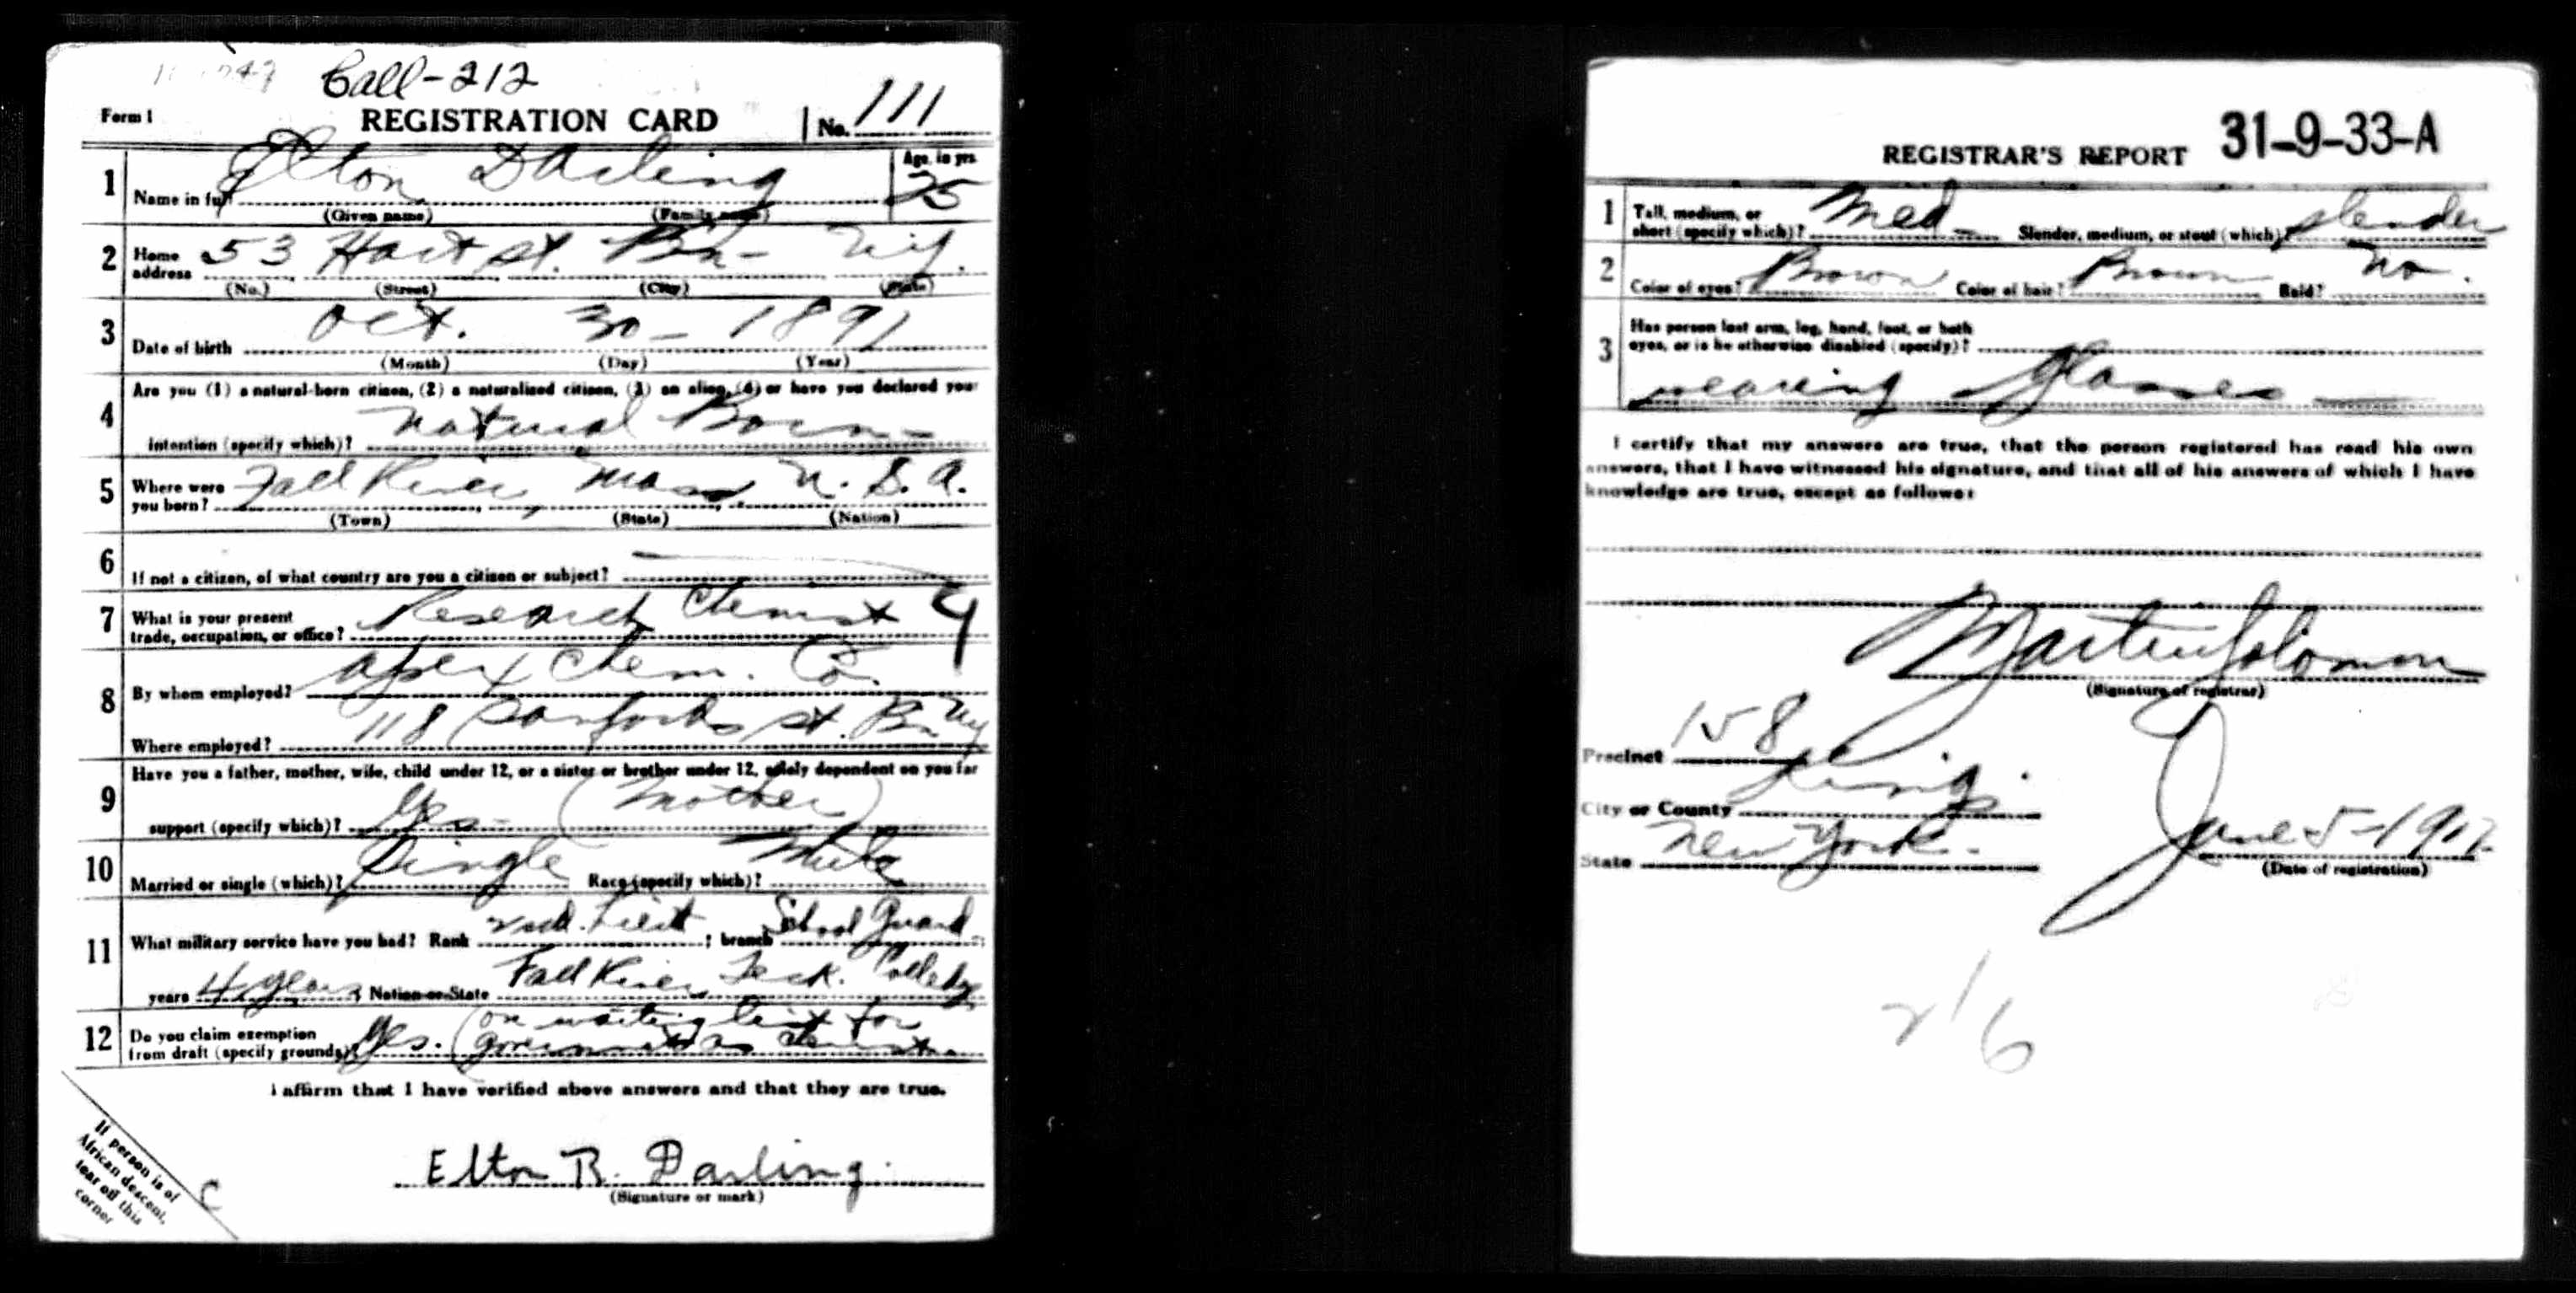 Call-212
Form 1 REGISTRATION CARD No. 111
1 Name in full Elton Darling Age, in yrs. 25
(Given name) (Family name)
2 Home address 53 Hart st. Bn- N.Y.
(No.) (Street) (City) (State)
3 Date of birth Oct. 30 - 1891
(Month) (Day) (Year)
4 Are you (1) a natural-born citizen, (2) a naturalized citizen, (3) an alien, (4) or have you declared your
intention (specify which)? Natural Born -
5 Where were you born? Fall River, Mass, U. S. A.
(Town) (State) (Nation)
6 If not a citizen, of what country are you a citizen or subject?
7 What is your present trade, occupation, or office? Research Chemist 4
8 By whom employed? Apex Chem. Co.
Where employed? 118 st. Bn NY
9 Have you a father, mother, wife, child under 12, or a sister or brother under 12, solely dependent on you for
support (specify which)? Yes - (Mother)
10 Married or single (which)? Single Race (specify which)? White
11 What military service have you had? Rank 2nd. Lieut ; branch School Guard
years 4 years ; Nation or State Fall River Tech. College
12 Do you claim exemption from draft (specify grounds)? Yes. (on waiting list for
government as chemist.
I affirm that I have verified above answers and that they are true.
Elton R. Darling.
(Signature or mark)
If person is of
African descent,
tear off this
corner
C
REGISTRAR'S REPORT 31-9-33-A
1 Tall, medium, or short (specify which)? Med - Slender, medium, or stout (which)? slender
2 Color of eyes? Brown Color of hair? Brown Bald? No.
3 Has person lost arm, leg, hand, foot, or both
eyes, or is he otherwise disabled (specify)?
wearing glasses
I certify that my answers are true, that the person registered has read his own
answers, that I have witnessed his signature, and that all of his answers of which I have
knowledge are true, except as follows:
Martin Solomon
(Signature of registrar)
Precinct 158
City or County Kings.
State New York.
June 5-1917.
(Date of registration)
2/6